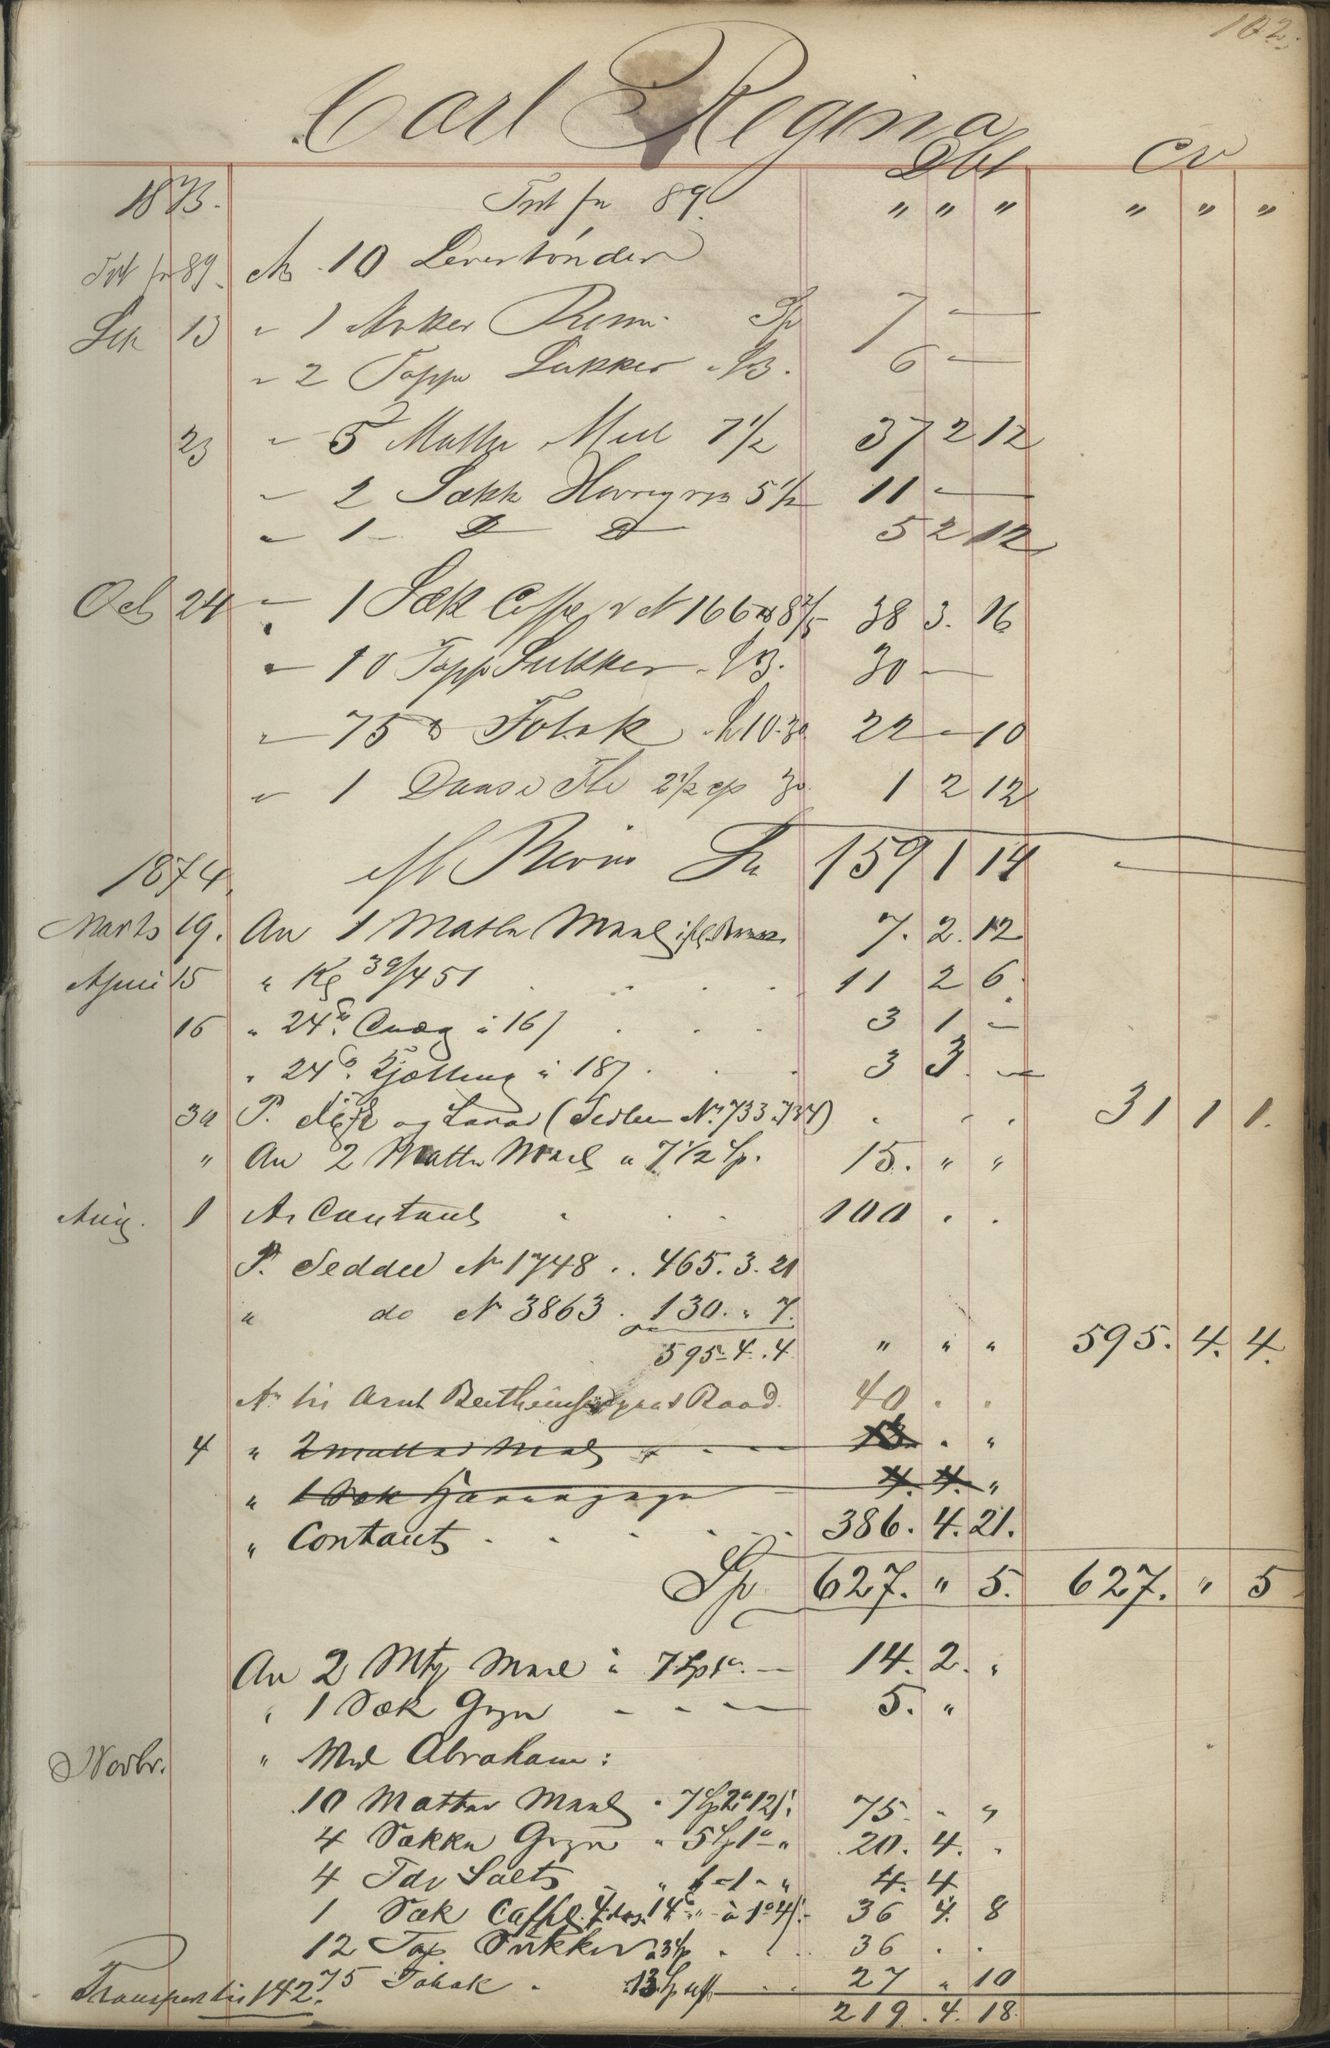 102.
Carl Regina
Dbt Cr
1873. Trt fra 89. " " " " " "
Trt fr 89. An 10 Levertønder
13 " 1 Anker Rum Sp 7 —
" 2 Toppe Sukker 3. 6 —
23 " 5 Matter Meel 7 1/2 37 2 12
" 2 Sække Havregryn 5 1/2 11 —
" 1 — D D 5 2 12
Oct 24 " 1 Sæk Caffe 166 38 3. 16
" 10 Topp Sukker 3. 30 —
" 75 Tobak 10.30 22 — 10
" 1 Daase The 2 1/2 30 1 2 12
159 1 14 —
1874.
Marts 19. An 1 Matte Meel 7. 2. 12
April 15 " 39/451 11 2 6.
16 " 24 à 16 3 1 —
" 24 à 18 3 3. —
30 P. og (Sedlen No. 733.734) " " " 31 1 1.
" An 2 Matter Meel a 7 1/2 Sp. 15. " "
Aug. 1 An Contant 100 . .
P. Seddel No 1748 . . 465. 3. 21
" do No 3863 . 130. " 7.
595. 4. 4 " " " 595. 4. 4.
An til Arnt Baad. 40 . .
4 " 2 Matter Meel . "
" 1 Sæk 4. 4. "
" Contant . . . . . 386. 4. 21.
Sp 627. " 5. 627. " 5
An 2 Mtr Meel à 7 Sp 1 — 14. 2. "
" 1 Sæk Gryn - - - 5. "
Novbr. " Med Abraham:
10 Matter Meel " 7 Sp 2 12 75. . "
4 Sække Gryn " 5 Sp 1 " 20. 4. .
4 Tdr Salt " 1 - 1 - " 4. 4
1 Sæk Caffe 36 4. 8
12 Top Sukker a 3 Sp . . . 36 . .
75 Tobak . 27 " 10
Transport til 142. 219. 4. 18.